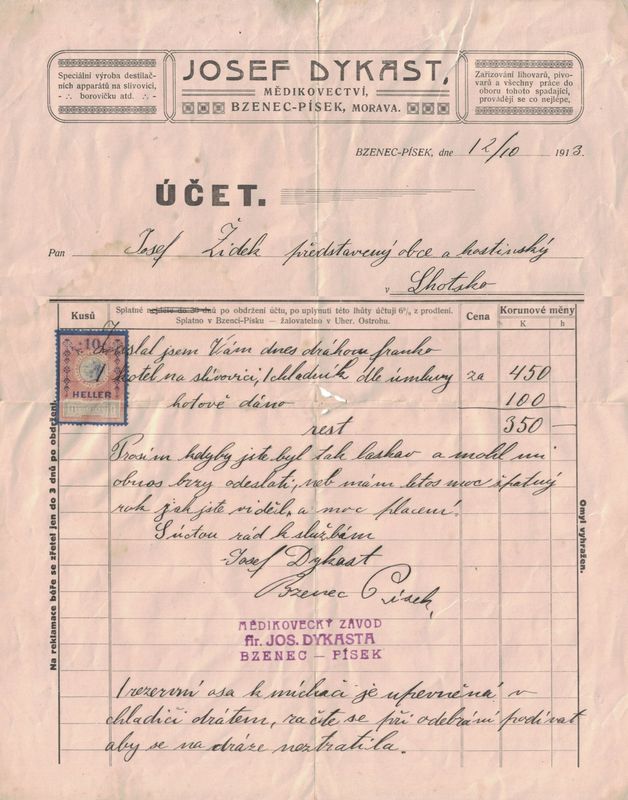 Speciální výroba destilač-
ních apparátů na slivovici,
borovičku atd.
JOSEF DYKAST,
MĚDIKOVECTVÍ,
BZENEC-PÍSEK, MORAVA.
Zařizování lihovarů, pivo-
varů a všechny práce do
oboru tohoto spadající,
provádějí se co nejlépe.
BZENEC-PÍSEK, dne 12/10 1913.
ÚČET.
Pan Josef Žídek představený obce a hostinský
v Lhotsko
Kusů
Splatné nejdéle do 30 dnů po obdržení účtu, po uplynutí této lhůty účtuji 6% z prodlení.
Splatno v Bzenci-Písku — žalovatelno v Uher. Ostrohu.
Cena
Korunové měny
K h
10
HELLER
Zaslal jsem Vám dnes dráhou franko
1 kotel na slivovici, 1 chladník dle úmluvy za 450
hotově dáno 100
rest 350 —
Prosím kdyby jste byl tak laskav a mohl mi
obnos brzy odeslati, neb mám letos moc špatný
rok jak jste viděl, a moc placení.
S úctou rád k službám
Josef Dykast
Bzenec Písek
MĚDIKOVECKÝ ZÁVOD
fir. JOS. DYKASTA
BZENEC — PÍSEK
1 rezervní osa k míchači je upevněná v
chladiči drátem, račte se při odebrání podívat
aby se na dráze neztratila.
Na reklamace béře se zřetel jen do 3 dnů po obdržení.
Omyl vyhražen.